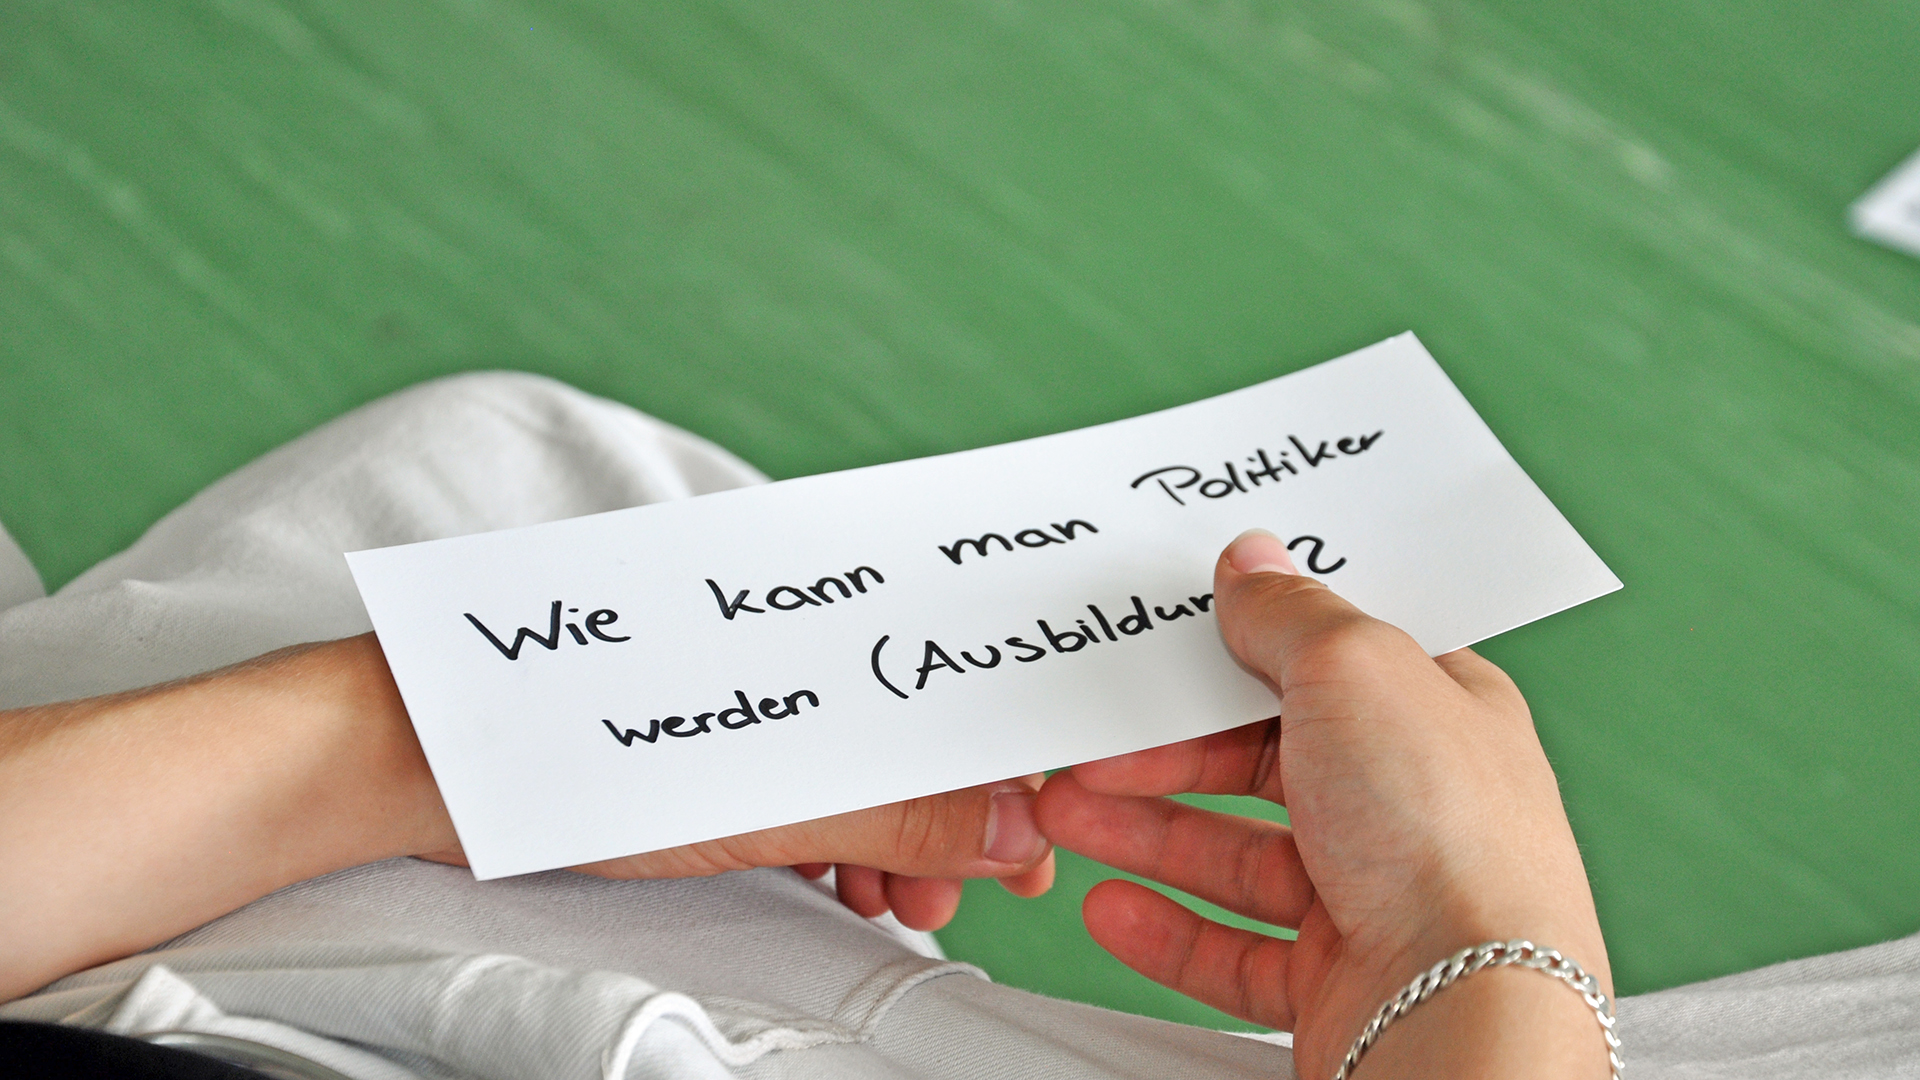 Wie kann man Politiker
werden (Ausbildun ?